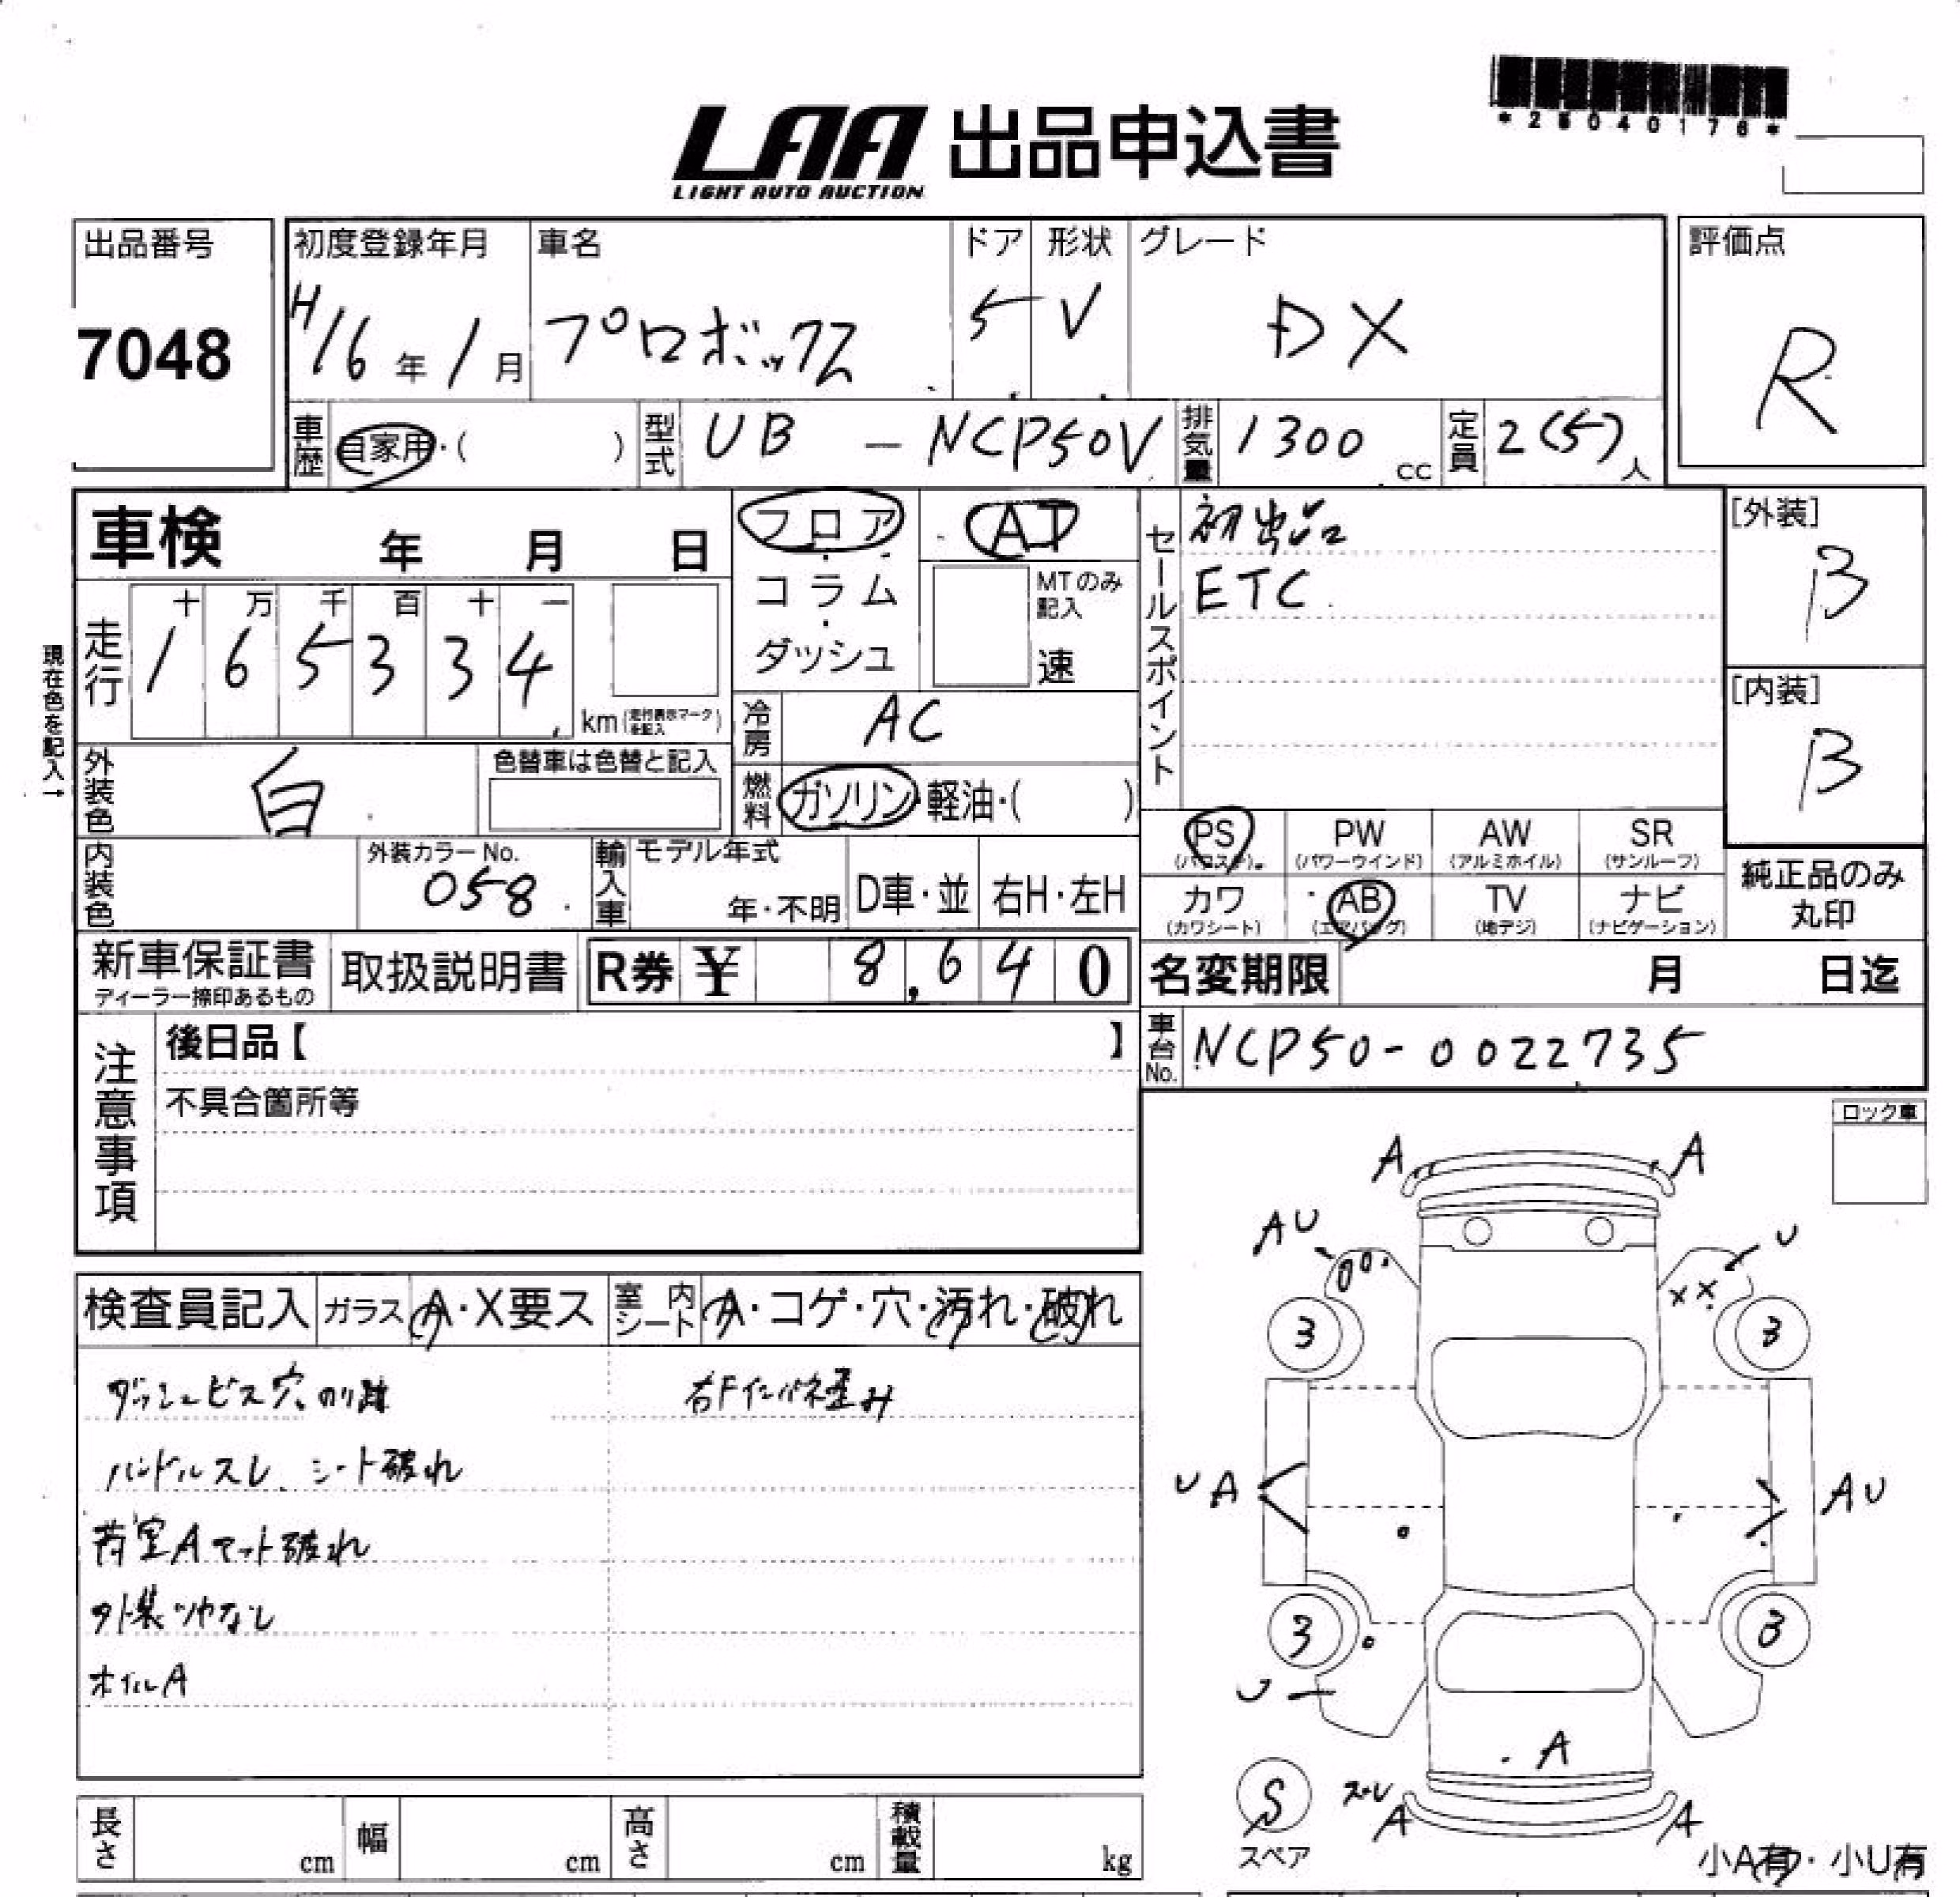 *28040176*
LAA 出品申込書
LIGHT AUTO AUCTION
出品番号 7048
初度登録年月 H16年1月
車名 プロボックス
ドア 5
形状 V
グレード DX
評価点 R
車歴 自家用・( )
型式 UB - NCP50V
排気量 1300 cc
定員 2(5)人
車検 年 月 日
現在色を記入→
走行 十 万 千 百 十 一
1 6 5 3 3 4 km (走行表示マークを記入)
フロア・コラム・ダッシュ
AT
MTのみ記入
速
冷房 AC
燃料 ガソリン・軽油・( )
外装色 白
色替車は色替と記入
内装色
外装カラーNo. 058
輸入車 モデル年式 年・不明 D車・並 右H・左H
セールスポイント
初出品
ETC
[外装] B
[内装] B
PS (パワステ) PW (パワーウインド) AW (アルミホイル) SR (サンルーフ)
カワ (カワシート) AB (エアバッグ) TV (地デジ) ナビ (ナビゲーション)
純正品のみ丸印
新車保証書 ディーラー捺印あるもの
取扱説明書
R券 ¥ 8,640
名変期限 月 日迄
車台No. NCP50-0022735
注意事項
後日品【 】
不具合箇所等
ロック車
検査員記入 ガラス A・X要ス 室内シート A・コゲ・穴・汚れ・破れ
ダッシュビス穴、のり跡
右Fインパネ歪み
ハンドルスレ、シート破れ
荷室Aマット破れ
外装ツヤなし
ホイルA
A A
AU U
XX
3 3
UA AU
3 3
U
A
S スペア
スレ
A A
小A有・小U有
長さ cm 幅 cm 高さ cm 積載量 kg